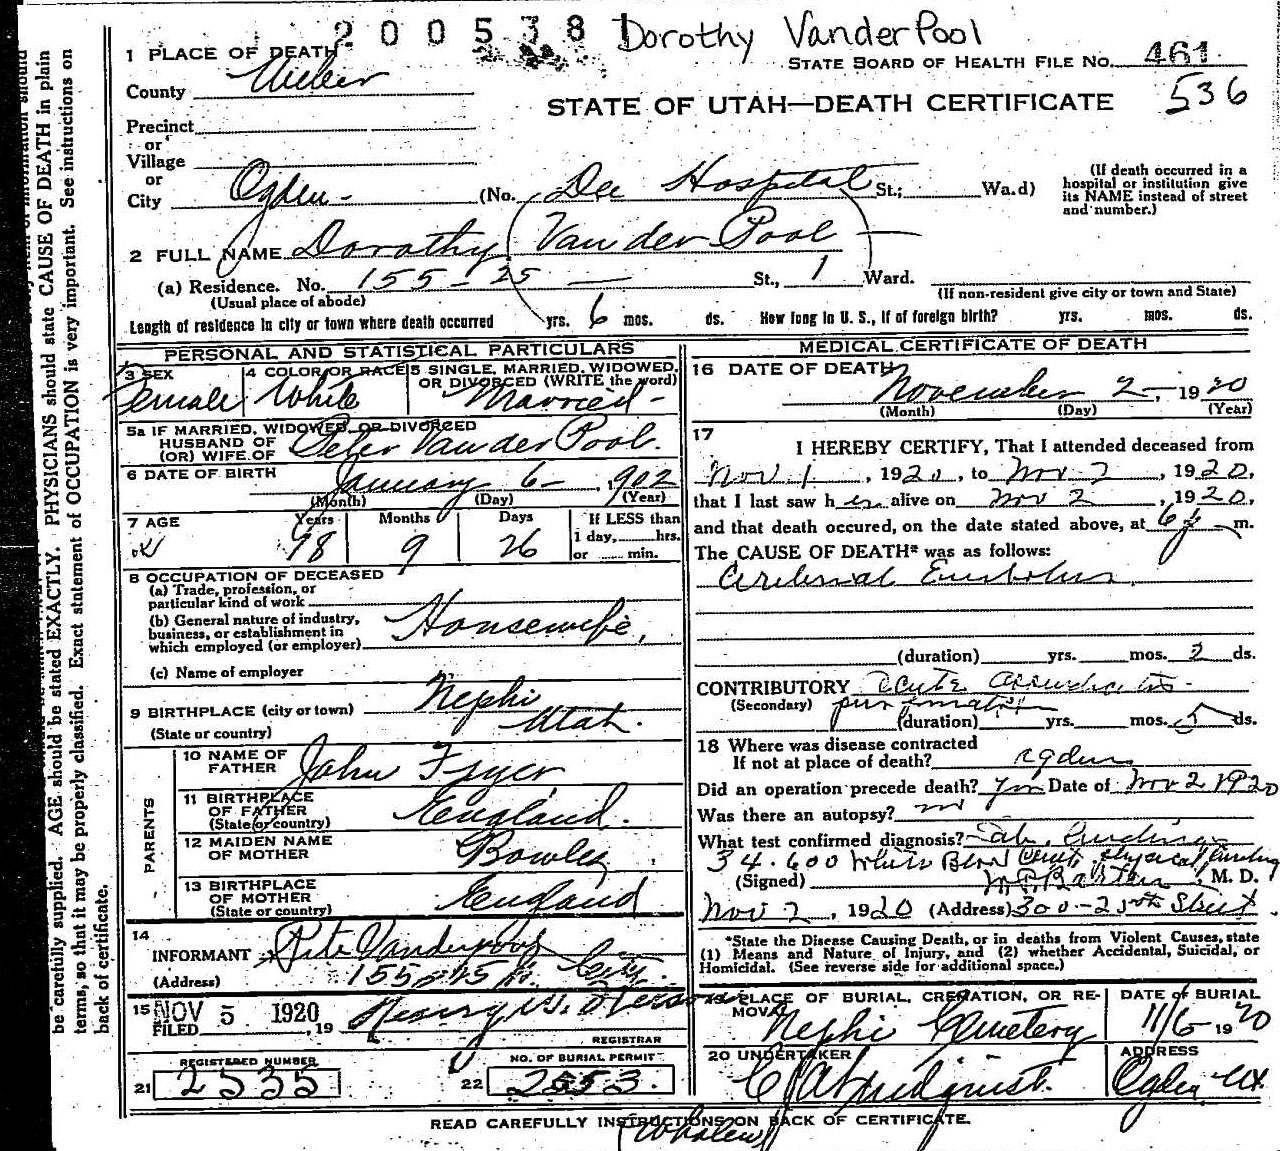 200538 Dorothy VanderPool
1 PLACE OF DEATH
STATE BOARD OF HEALTH FILE No. 461
County Weber
STATE OF UTAH—DEATH CERTIFICATE 536
Precinct
or
Village
or
City Ogden (No. Dee Hospital St.; Wa.d)
(If death occurred in a
hospital or institution give
its NAME instead of street
and number.)
2 FULL NAME Dorothy Van der Pool
(a) Residence. No. 155 - 25 St., 1 Ward.
(Usual place of abode)
(If non-resident give city or town and State)
Length of residence in city or town where death occurred yrs. 6 mos. ds. How long in U. S., if of foreign birth? yrs. mos. ds.
PERSONAL AND STATISTICAL PARTICULARS
3 SEX Female
4 COLOR OR RACE White
5 SINGLE, MARRIED, WIDOWED,
OR DIVORCED (WRITE the word)
Married
5a IF MARRIED, WIDOWED OR DIVORCED
HUSBAND OF
(OR) WIFE OF Peter Van der Pool.
6 DATE OF BIRTH January 6 - , 1902
(Month) (Day) (Year)
7 AGE Years Months Days If LESS than
18 9 26 1 day, hrs.
or min.
8 OCCUPATION OF DECEASED
(a) Trade, profession, or
particular kind of work
(b) General nature of industry,
business, or establishment in
which employed (or employer) Housewife,
(c) Name of employer
9 BIRTHPLACE (city or town) Nephi
(State or country) Utah.
PARENTS
10 NAME OF
FATHER John Fryer
11 BIRTHPLACE
OF FATHER England.
(State or country)
12 MAIDEN NAME
OF MOTHER Bowles
13 BIRTHPLACE
OF MOTHER England
(State or country)
14
INFORMANT Pete Vanderpool
(Address) 155 25 St. City.
15 NOV 5 1920
FILED , 19 Henry
REGISTRAR
REGISTERED NUMBER
21 2535
NO. OF BURIAL PERMIT
22 2553.
MEDICAL CERTIFICATE OF DEATH
16 DATE OF DEATH
November 2 - , 1920
(Month) (Day) (Year)
17
I HEREBY CERTIFY, That I attended deceased from
Nov 1 , 1920, to Nov 2 , 1920,
that I last saw h er alive on Nov 2 , 1920,
and that death occured, on the date stated above, at 6 m.
The CAUSE OF DEATH* was as follows:
Cerebral Embolus.
(duration) yrs. mos. 2 ds.
CONTRIBUTORY Acute Appendicitis
(Secondary)
(duration) yrs. mos. 5 ds.
18 Where was disease contracted
If not at place of death? Ogden
Did an operation precede death? Yes Date of Nov 2 1920
Was there an autopsy? no
What test confirmed diagnosis? Lab. findings
34.600 White Blood Physical finding
(Signed) M. D.
Nov 2, 1920 (Address) 300 - 25th Street.
*State the Disease Causing Death, or in deaths from Violent Causes, state
(1) Means and Nature of Injury, and (2) whether Accidental, Suicidal, or
Homicidal. (See reverse side for additional space.)
19 PLACE OF BURIAL, CREMATION, OR RE-
MOVAL
Nephi Cemetery
DATE of BURIAL
11/6 1920
20 UNDERTAKER
ADDRESS
Ogden Ut
READ CAREFULLY INSTRUCTIONS ON BACK OF CERTIFICATE.
(Whalen)
be carefully supplied. AGE should be stated EXACTLY. PHYSICIANS should state CAUSE OF DEATH in plain
terms, so that it may be properly classified. Exact statement of OCCUPATION is very important. See instructions on
back of certificate.